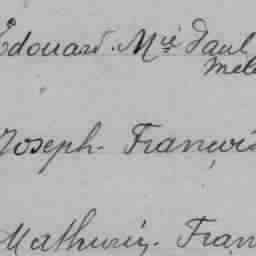 Edouard. Mie Paul
Mel
Joseph. François
Mathurin. Fran